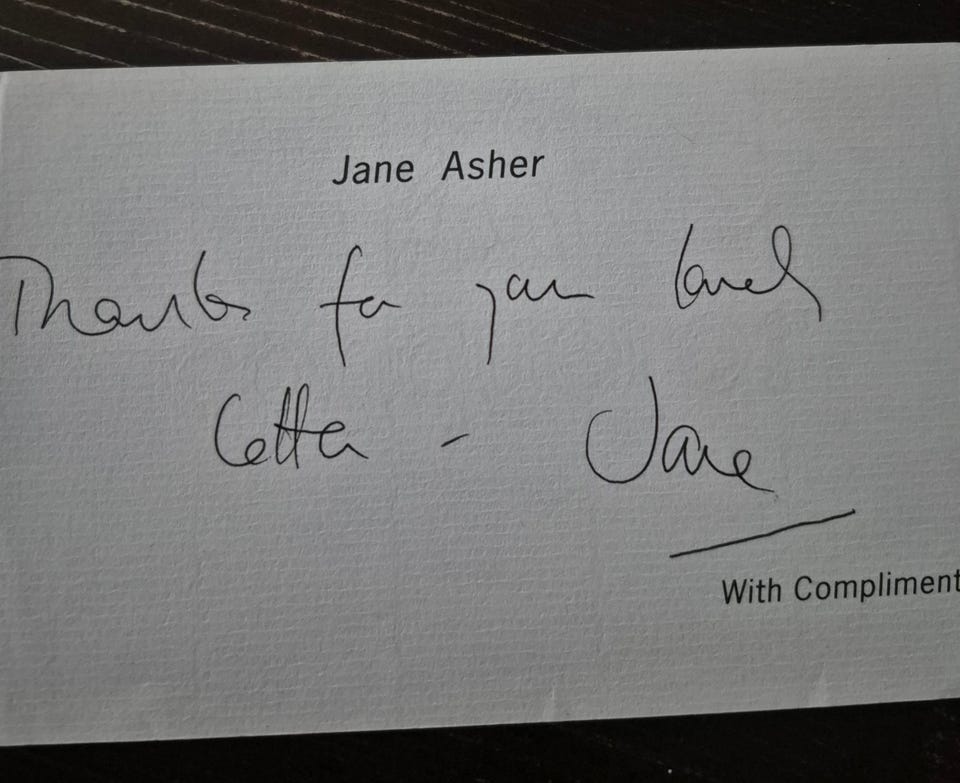 Jane Asher
Thanks for your lovely
letter - Jane
With Compliment